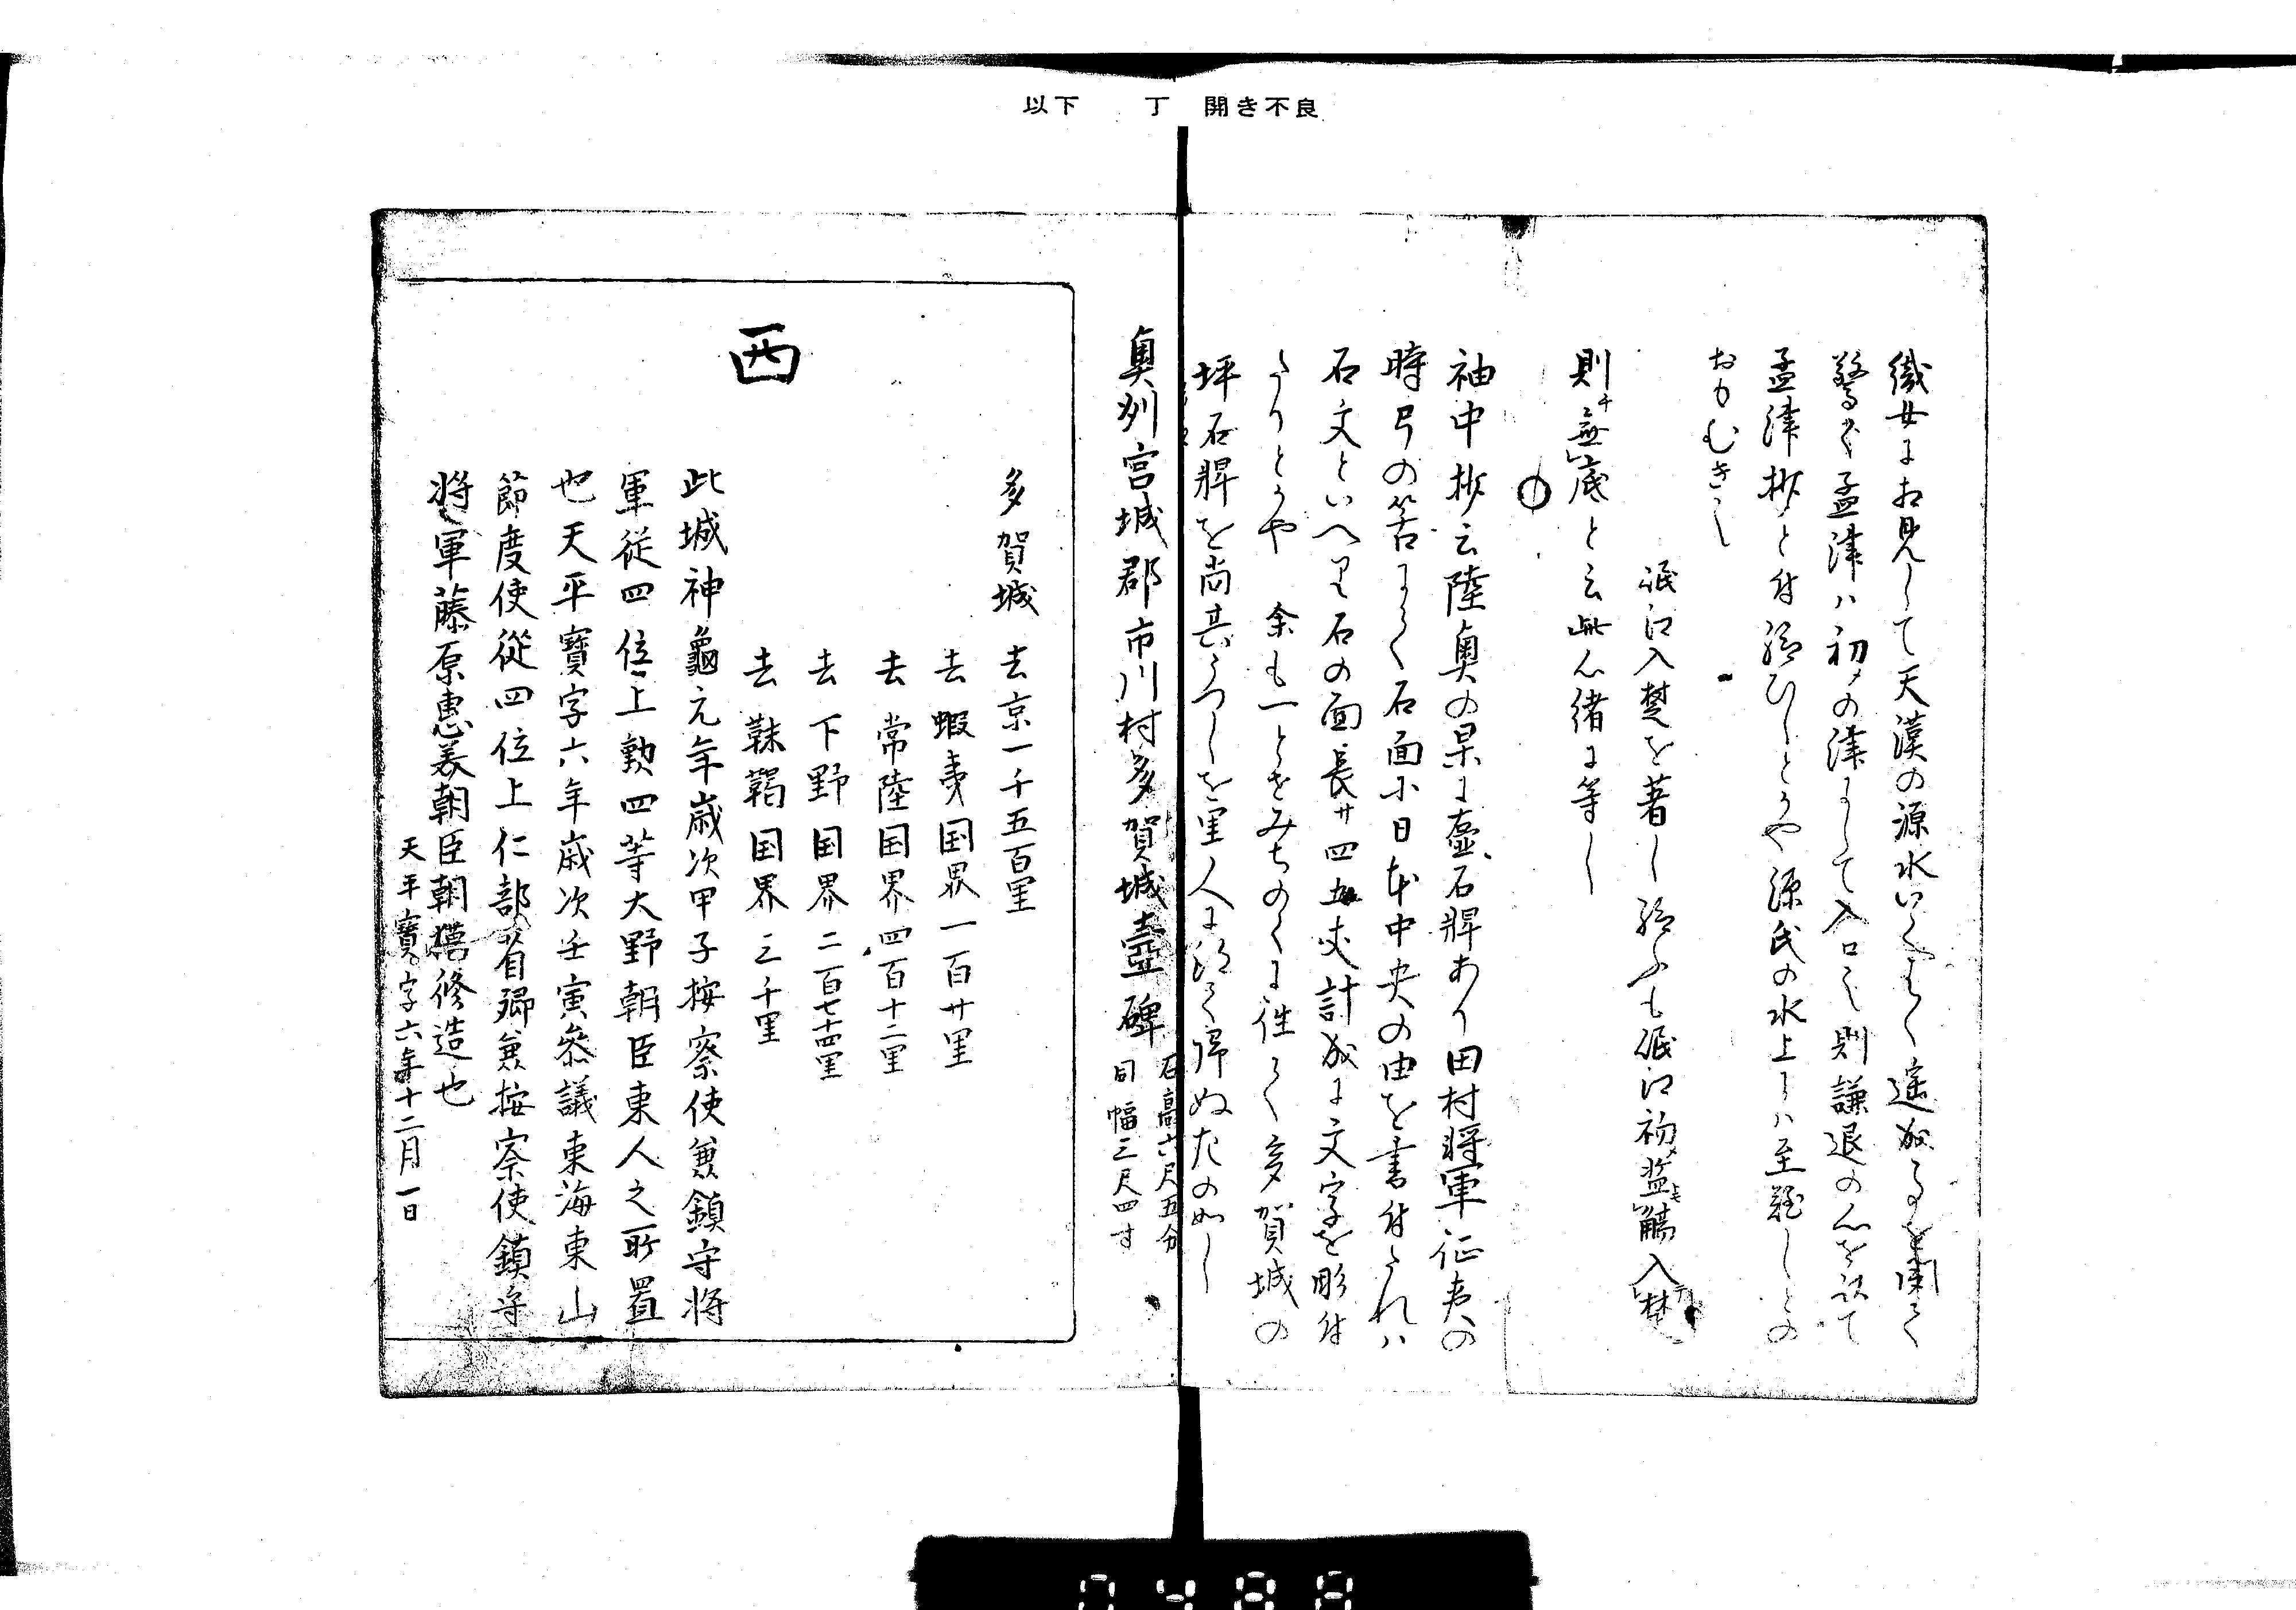 以下　丁　開き不良
織女に相見して天漢の源水いくはく遥成事を聞て
驚く孟津ハ初メの津にして入口也則謙退の心を以て
孟津抄と付給ひしとかや源氏の水上にハ至難しとの
おもむき也
岷江入楚を著し給ふも岷江初メ盗觴入楚
則チ無底と云此心緒に等し
袖中抄云陸奥の果に壺ノ石碑あり田村将軍征夷の
時弓の筈にて石面に日本中央の由を書付たれハ
石文といへり石の面長サ四五丈計成に文字を彫付
たりとかや　余も一とせみちのくに往て多賀城の
坪石碑を尚其うつしを里人に得て帰ぬたの如し
奥州宮城郡市川村多賀城壺碑　石高六尺五分　同幅三尺四寸
西
多賀城　去京一千五百里
去蝦夷国界一百廿里
去常陸国界四百十二里
去下野国界二百七十四里
去靺鞨国界三千里
此城神龜元年歳次甲子按察使兼鎮守将
軍従四位上勲四等大野朝臣東人之所置
也天平寶字六年歳次壬寅参議東海東山
節度使従四位上仁部省卿兼按察使鎮守
将軍藤原恵美朝臣朝獦修造也
天平寶字六年十二月一日